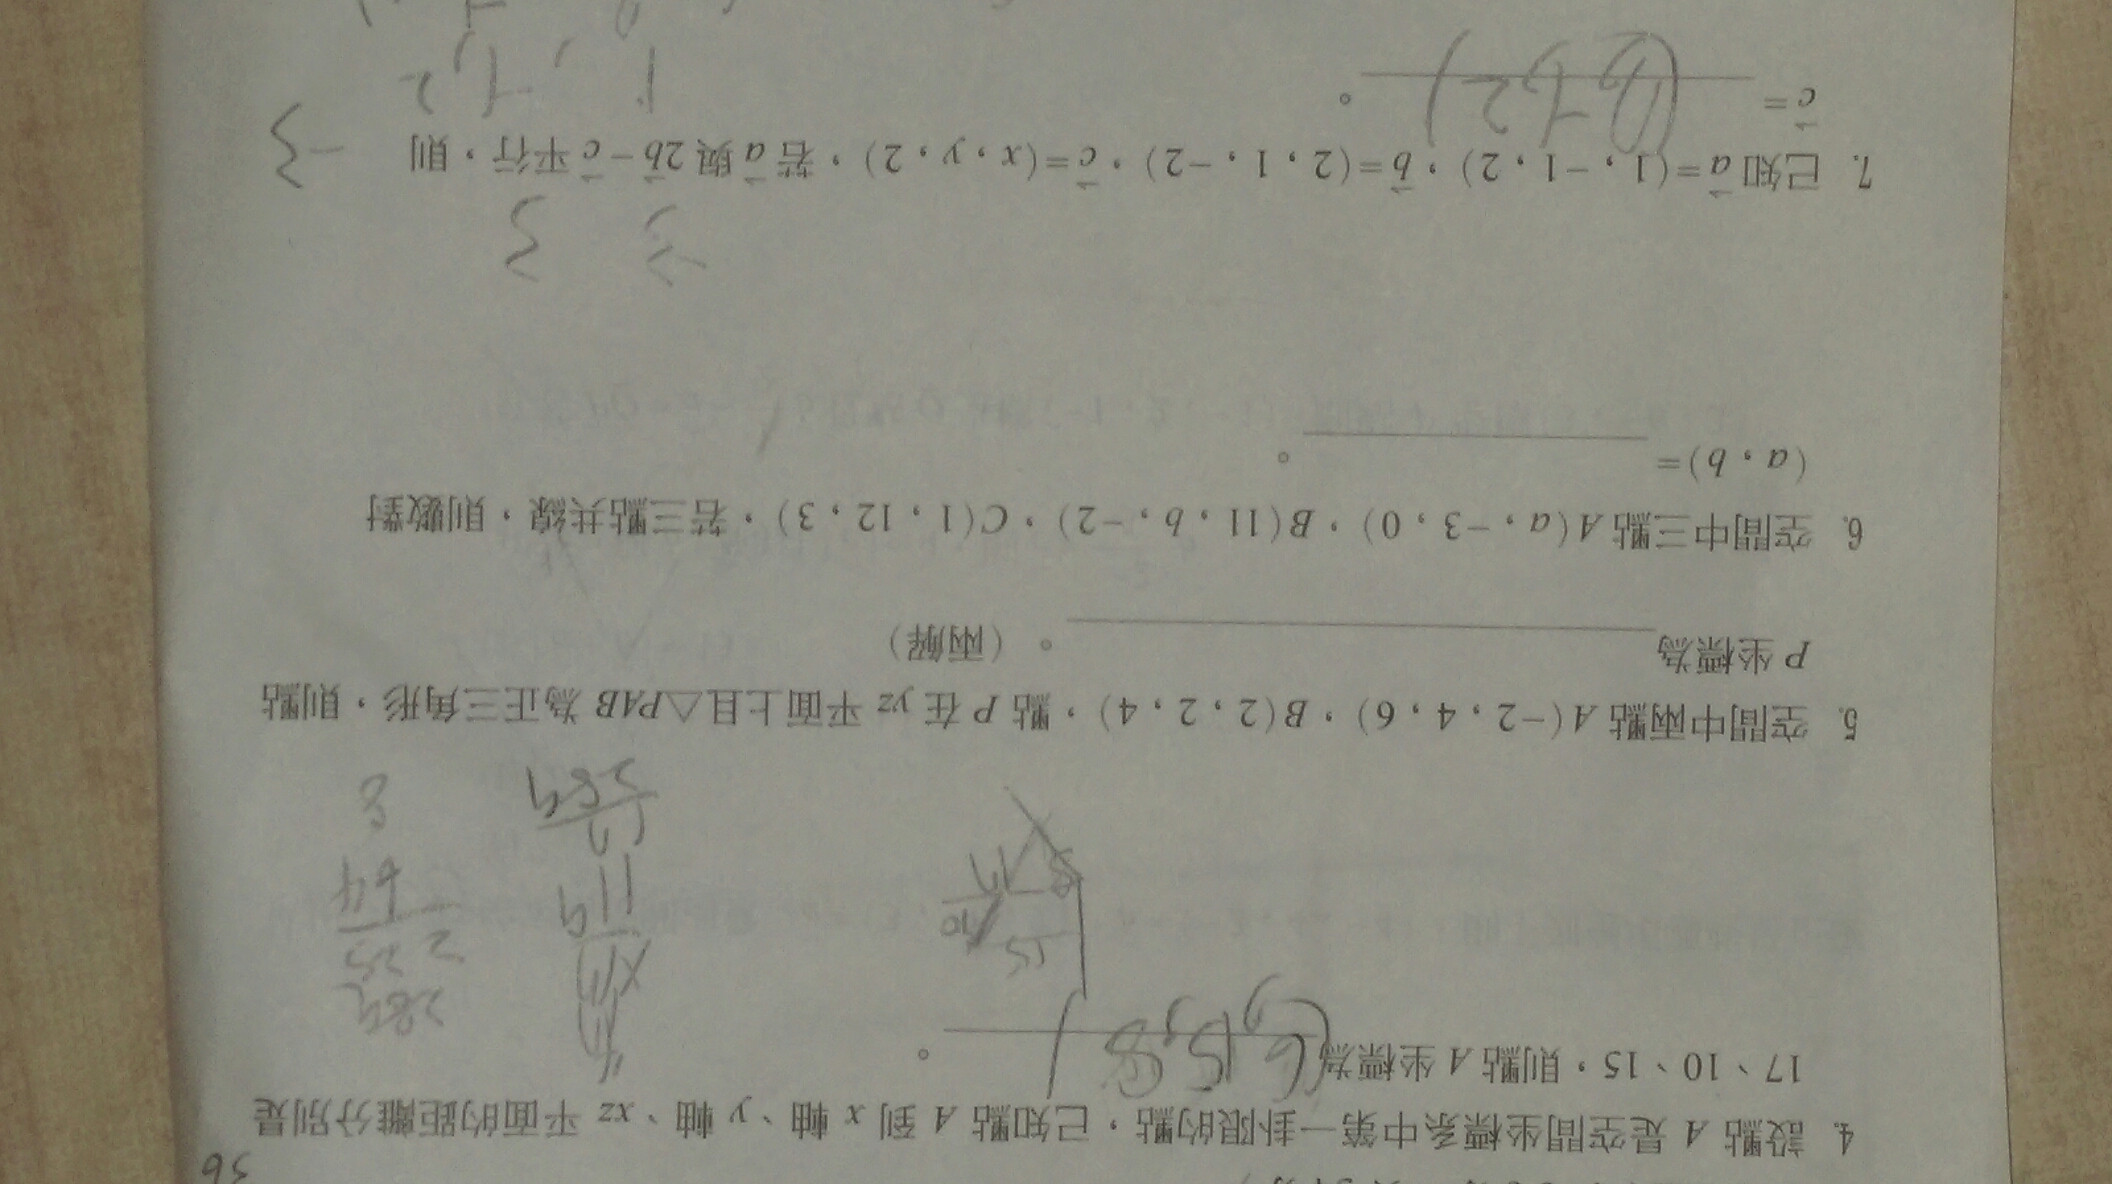 36
4. 設點 A 是空間坐標系中第一卦限的點，已知點 A 到 x 軸、y 軸、xz 平面的距離分別是
17、10、15，則點 A 坐標為(6,15,8)。
289
225
64
8
17
×17
119
17
289
15
10
17
8
5. 空間中兩點 A(−2，4，6)，B(2，2，4)，點 P 在 yz 平面上且△PAB 為正三角形，則點
P 坐標為 。（兩解）
6. 空間中三點 A(a，−3，0)，B(11，b，−2)，C(1，12，3)，若三點共線，則數對
(a，b)= 。
7. 已知 a=(1，−1，2)，b=(2，1，−2)，c=(x，y，2)，若 a 與 2b−c 平行，則
c= 。